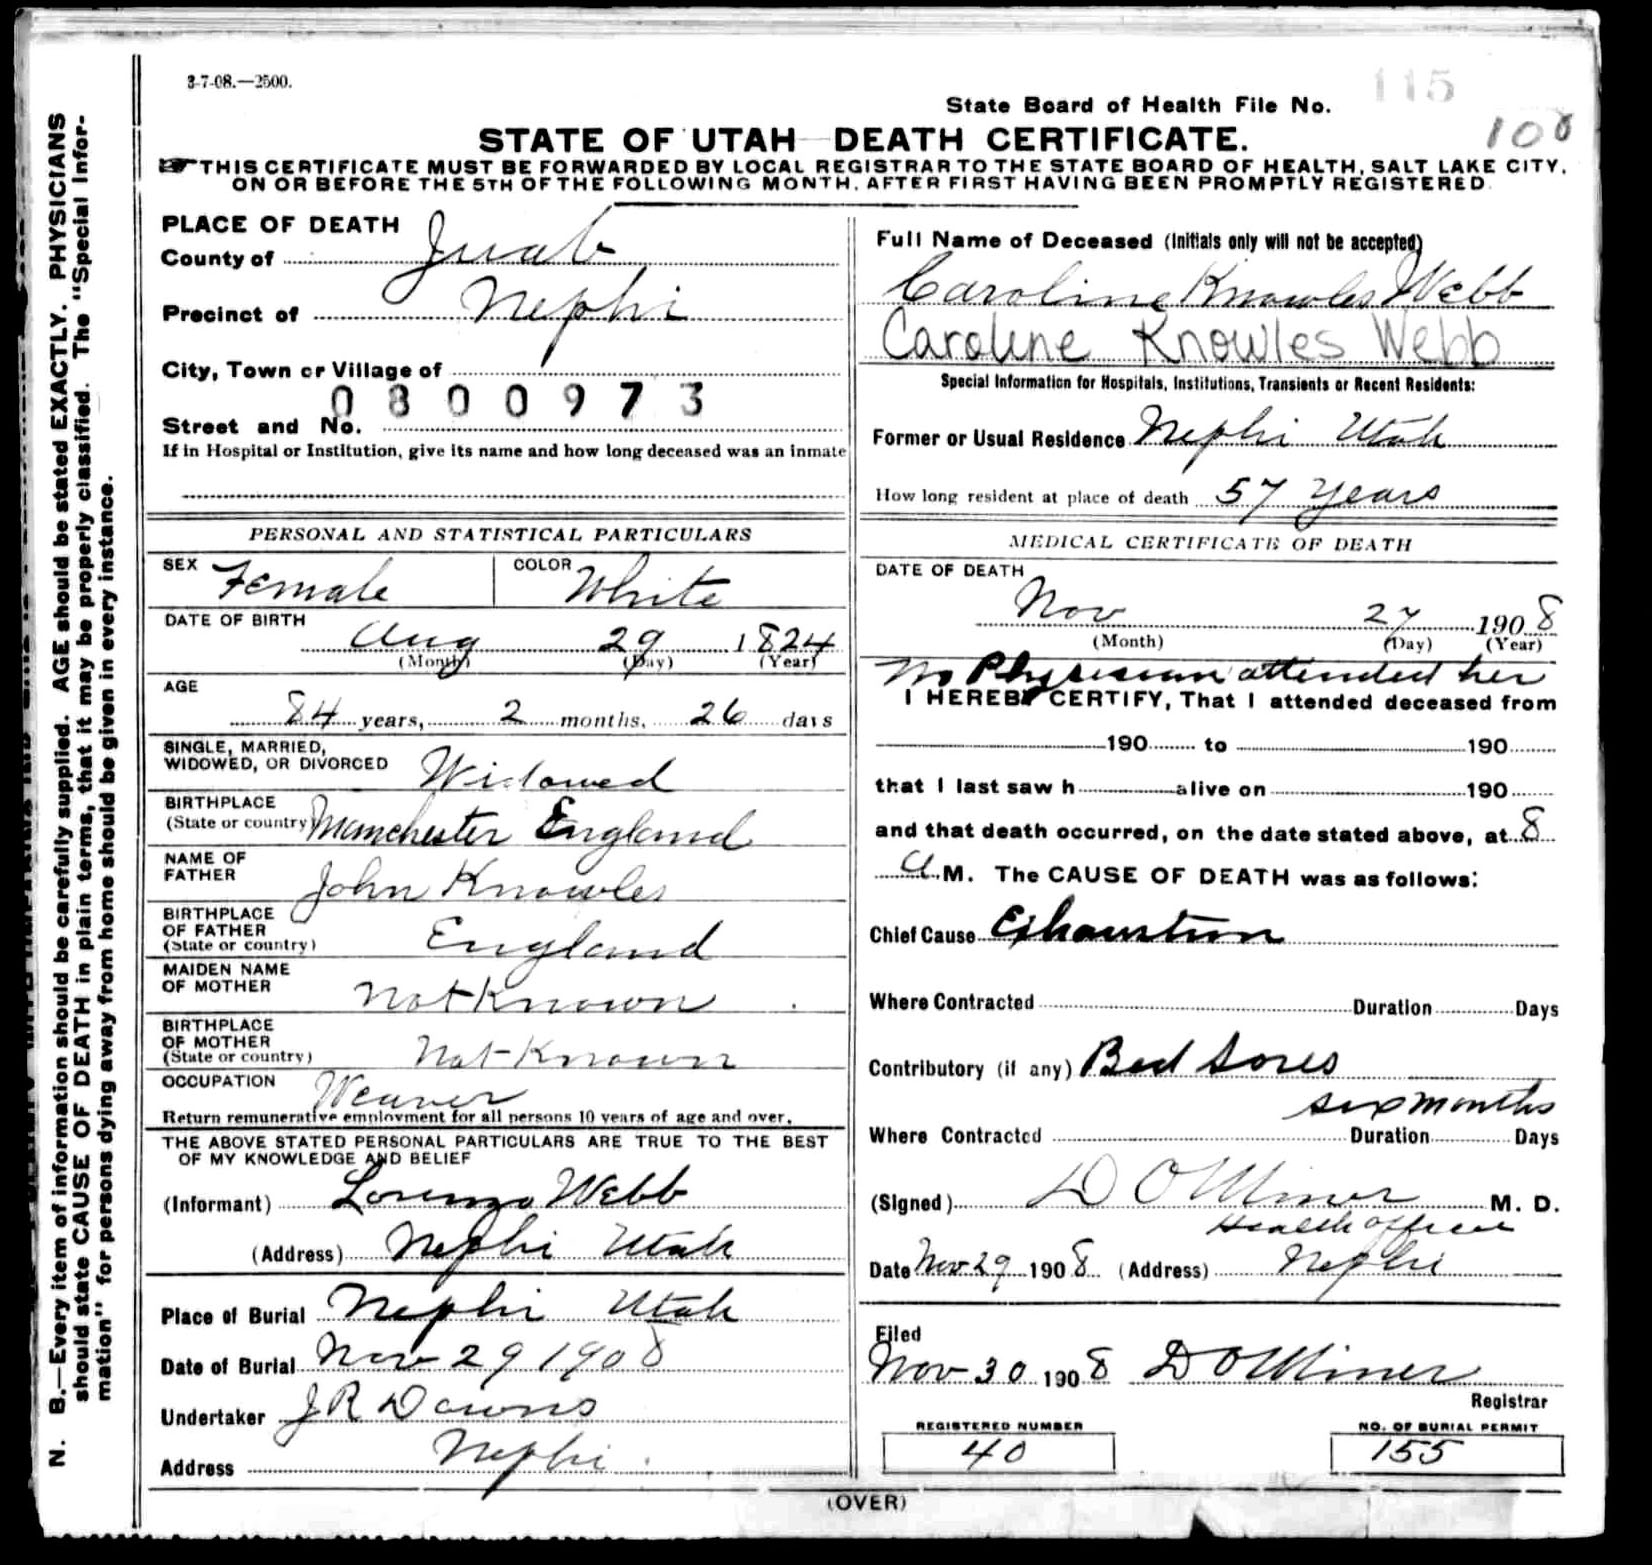 3-7-08.—2500.
115
State Board of Health File No.
108
STATE OF UTAH—DEATH CERTIFICATE.
THIS CERTIFICATE MUST BE FORWARDED BY LOCAL REGISTRAR TO THE STATE BOARD OF HEALTH, SALT LAKE CITY,
ON OR BEFORE THE 5TH OF THE FOLLOWING MONTH, AFTER FIRST HAVING BEEN PROMPTLY REGISTERED.
PLACE OF DEATH
County of Juab
Precinct of Nephi
City, Town or Village of
0800973
Street and No.
If in Hospital or Institution, give its name and how long deceased was an inmate
PERSONAL AND STATISTICAL PARTICULARS
SEX Female COLOR White
DATE OF BIRTH
Aug 29 1824
(Month) (Day) (Year)
AGE
84 years, 2 months, 26 days
SINGLE, MARRIED,
WIDOWED, OR DIVORCED Widowed
BIRTHPLACE
(State or country) Manchester England
NAME OF
FATHER John Knowles
BIRTHPLACE
OF FATHER
(State or country) England
MAIDEN NAME
OF MOTHER Not Known
BIRTHPLACE
OF MOTHER
(State or country) Not Known
OCCUPATION Weaver
Return remunerative employment for all persons 10 years of age and over.
THE ABOVE STATED PERSONAL PARTICULARS ARE TRUE TO THE BEST
OF MY KNOWLEDGE AND BELIEF
(Informant) Lorenzo Webb
(Address) Nephi Utah
Place of Burial Nephi Utah
Date of Burial Nov 29 1908
Undertaker J R Downs
Address Nephi
Full Name of Deceased (Initials only will not be accepted)
Caroline Knowles Webb
Caroline Knowles Webb
Special Information for Hospitals, Institutions, Transients or Recent Residents:
Former or Usual Residence Nephi Utah
How long resident at place of death 57 years
MEDICAL CERTIFICATE OF DEATH
DATE OF DEATH
Nov 27 1908
(Month) (Day) (Year)
No Physician attended her
I HEREBY CERTIFY, That I attended deceased from
190 to 190
that I last saw h alive on 190
and that death occurred, on the date stated above, at 8
A.M. The CAUSE OF DEATH was as follows:
Chief Cause Exhaustion
Where Contracted Duration Days
Contributory (if any) Bed Sores
six months
Where Contracted Duration Days
(Signed) D O Miner M. D.
Health Officer
Date Nov 29 1908 (Address) Nephi
Filed
Nov 30 1908 D O Miner
Registrar
REGISTERED NUMBER
40
NO. OF BURIAL PERMIT
155
(OVER)
N. B.—Every item of information should be carefully supplied. AGE should be stated EXACTLY. PHYSICIANS
should state CAUSE OF DEATH in plain terms, that it may be properly classified. The "Special Infor-
mation" for persons dying away from home should be given in every instance.